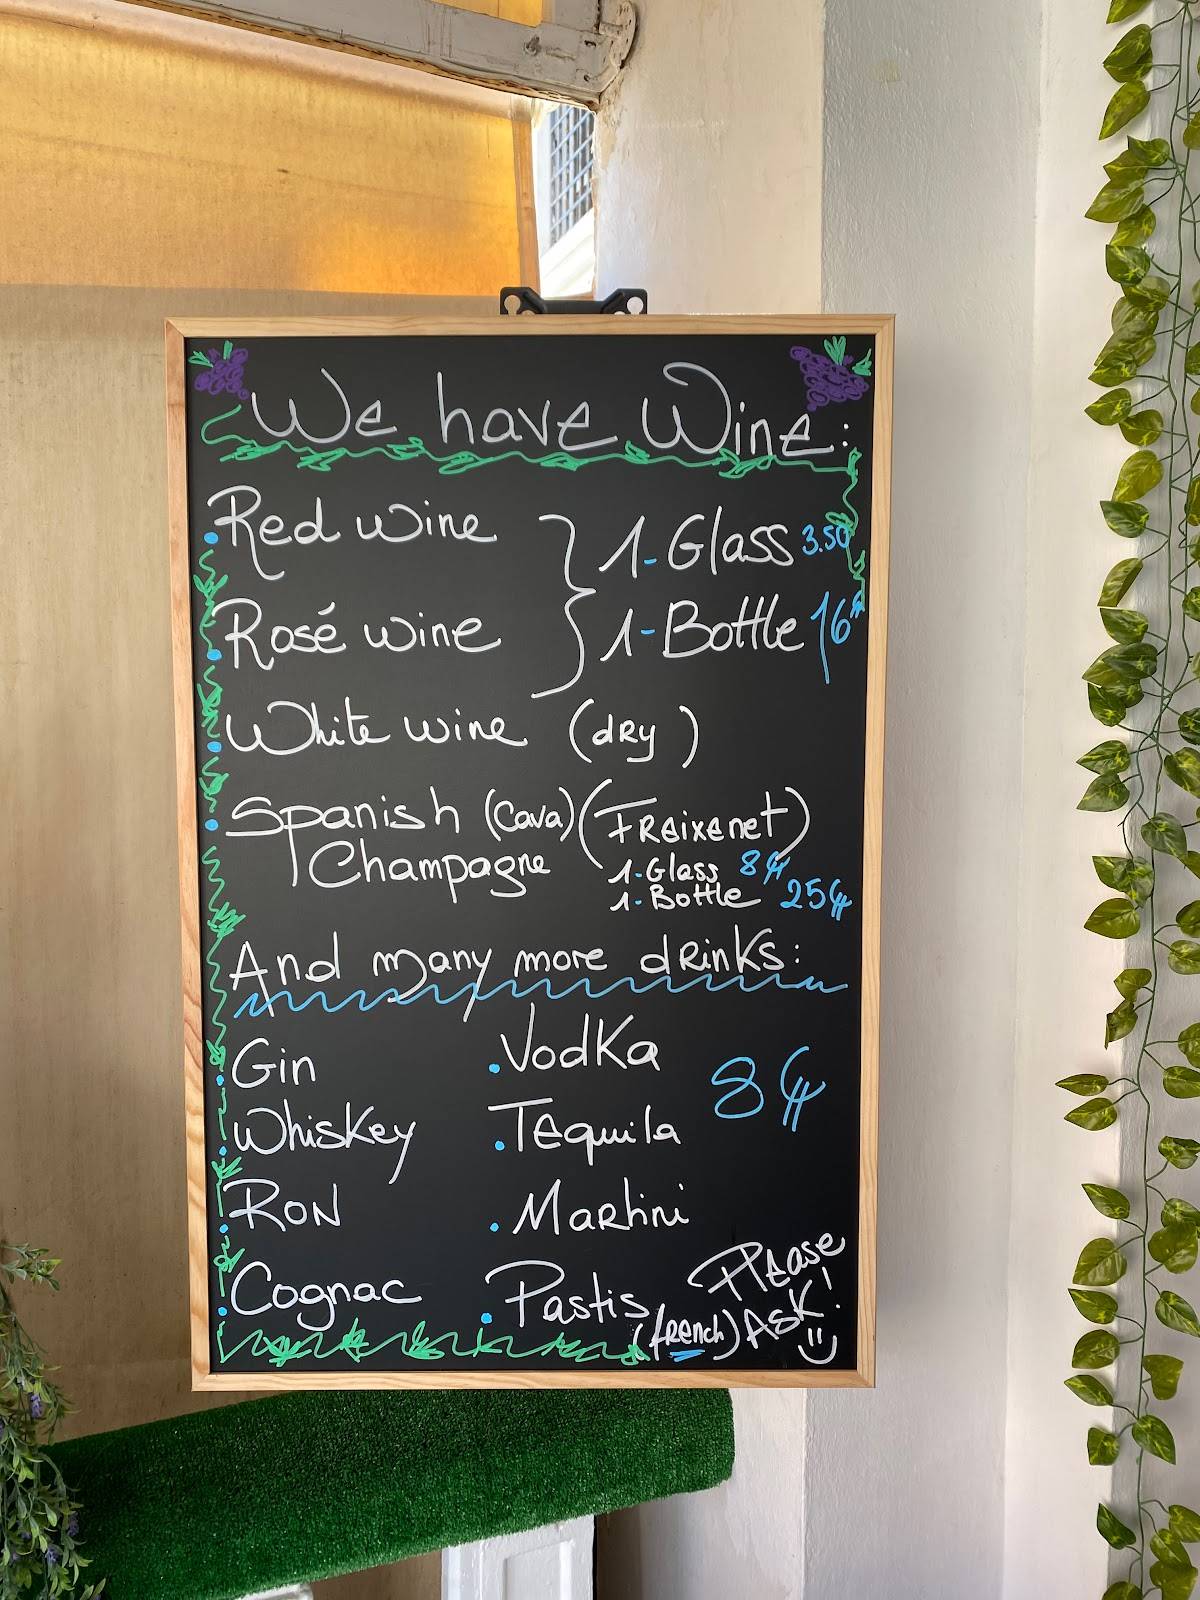 We have Wine:
Red wine
1-Glass 3.50
Rosé wine
1-Bottle 16€
White wine (dry)
Spanish (Cava) (Freixenet)
Champagne
1-Glass 8€
1-Bottle 25€
And many more drinks:
Gin
.Vodka
8€
Whiskey
.Tequila
Ron
.Martini
Cognac
.Pastis
(french)
Please
Ask!